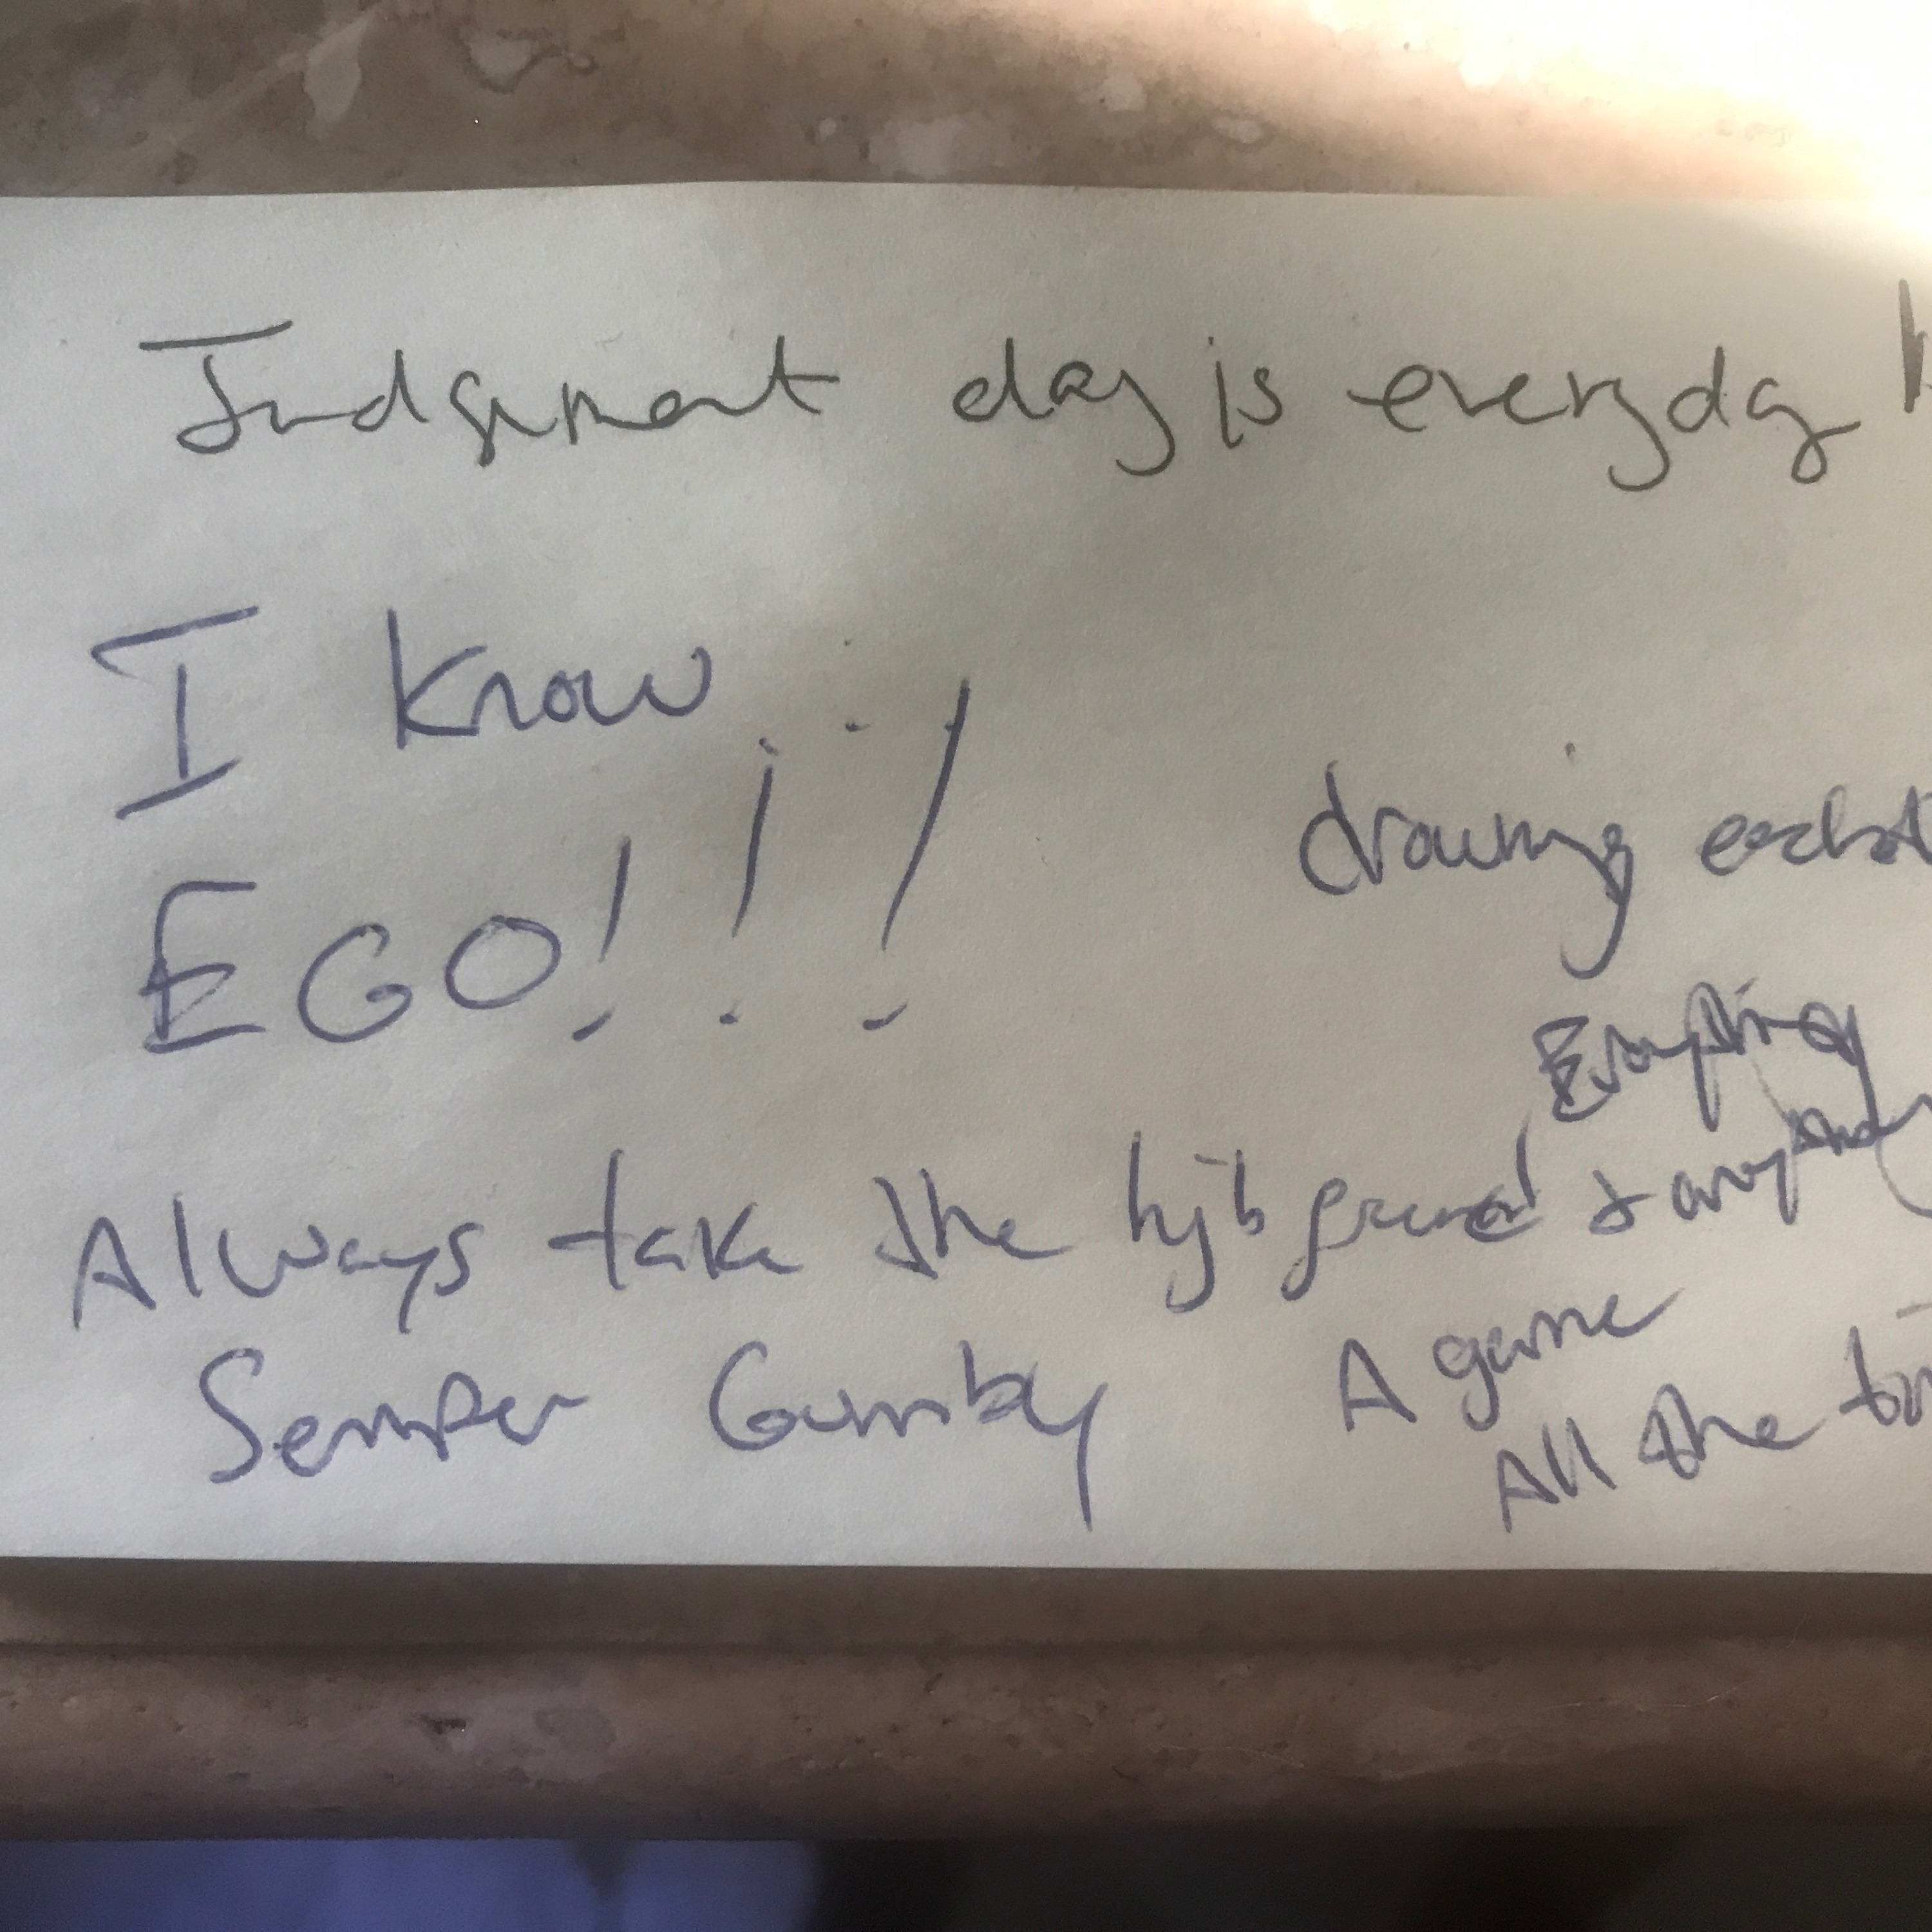 Judgment day is everyday
I know...
EGO!!!
drawing
Everything
Always take the high ground & anything
Semper Gumby
A game
All the